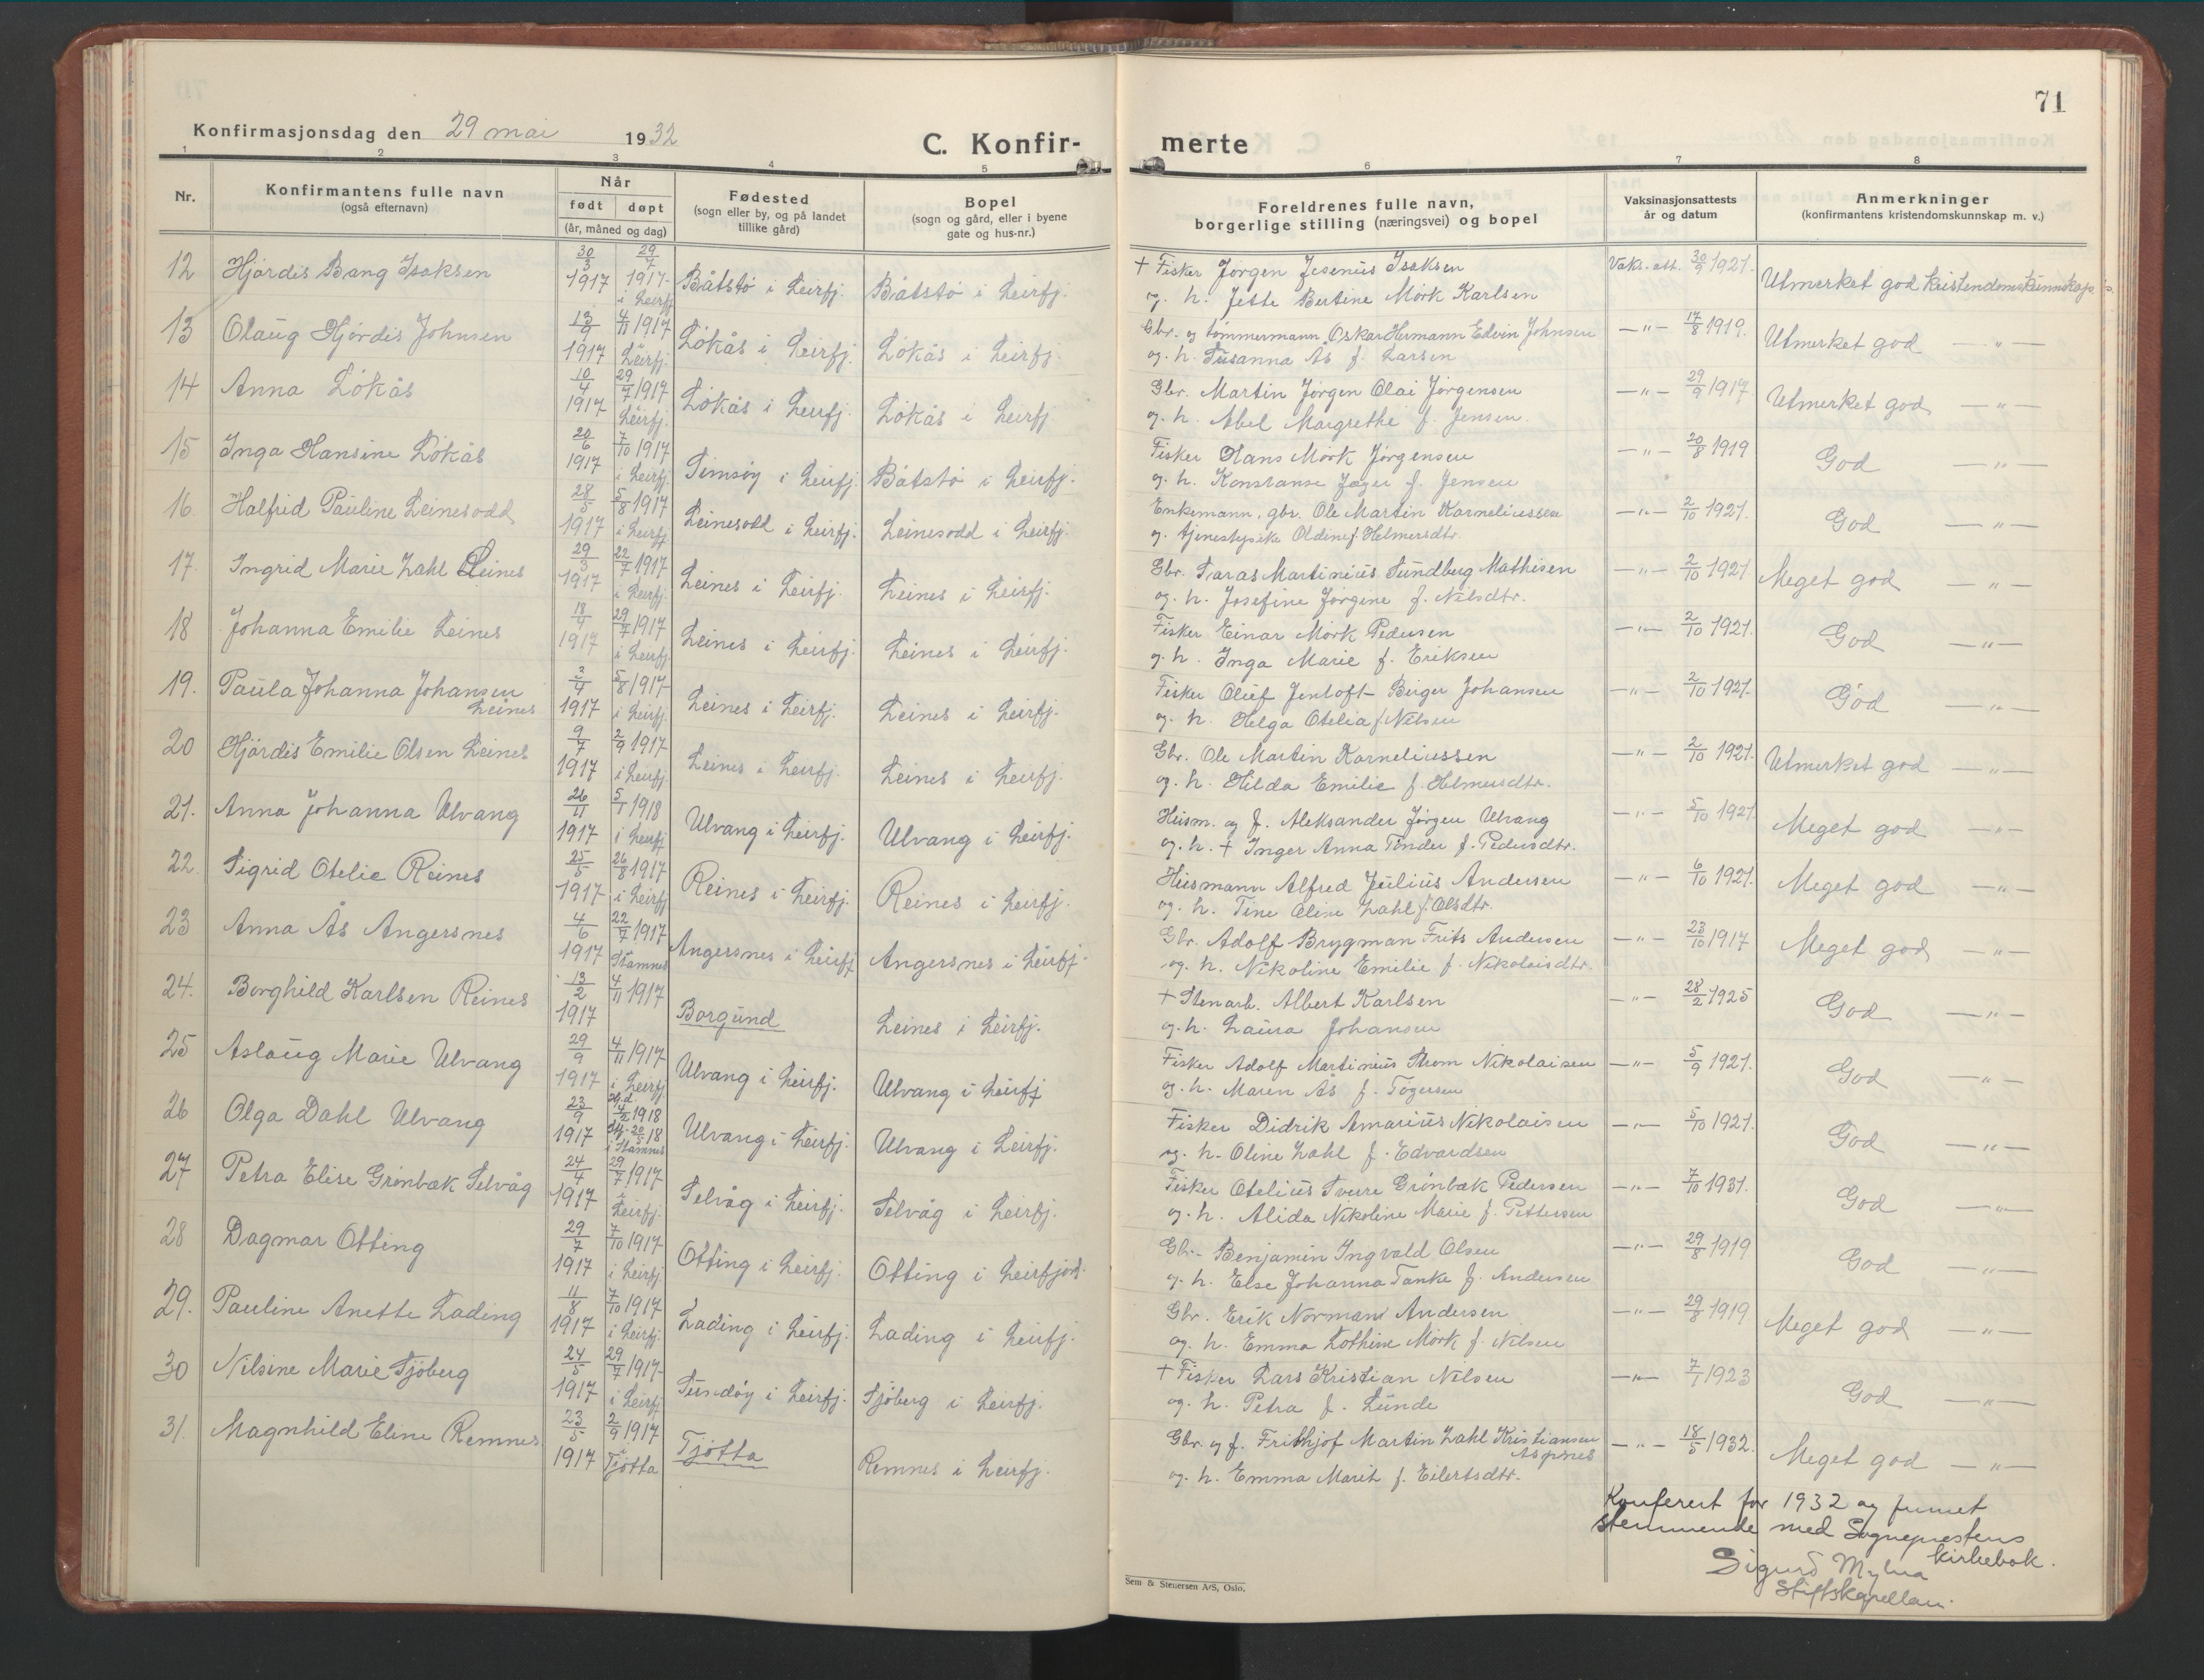 71
Konfirmasjonsdag den 29 mai 1932
C. Konfir-merte
1 2 3 4 5 6 7 8
Nr.
Konfirmantens fulle navn
(også efternavn)
Når
født døpt
(år, måned og dag)
Fødested
(sogn eller by, og på landet
tillike gård)
Bopel
(sogn og gård, eller i byene
gate og hus-nr.)
Foreldrenes fulle navn,
borgerlige stilling (næringsvei) og bopel
Vaksinasjonsattests
år og datum
Anmerkninger
(konfirmantens kristendomskunnskap m. v.)
12 Hjördis Bang Isaksen 30/3 1917 29/7 1917 i Leirfj. Båtstø i Leirfj. Båtstø i Leirfj. + Fisker Jørgen Jesenius Isaksen Vaks. att. 30/9 1921. Utmerket god kristendomskunnskap.
og h. Jette Bertine Mörk Karlsen
13 Olaug Hjördis Johnsen 1917 4/11 1917 Leirfj. Lökås i Leirfj. Lökås i Leirfj. Gbr. og tömmermann Oskar Hermann Edvin Johnsen —"— 17/8 1919. Utmerket god —"—
og h. Susanna Ås f. Larsen
14 Anna Lökås 10/4 1917 29/7 1917 Leirfj. Lökås i Leirfj. Lökås i Leirfj Gbr. Martin Jörgen Olai Jörgensen —"— 29/9 1917 Utmerket god —"—
og h. Abel Margrethe f. Jensen.
15 Inga Hansine Lökås 20/6 1917 7/10 1917 i Leirfj. Simsøy i Leirfj. Båtstø i Leirfj. Fisker Hans Mörk Jörgensen —"— 20/8 1919 God —"—
og h. Konstanse Jæger f. Jensen
16 Halfrid Pauline Leinesodd 28/5 1917 5/8 1917 i Leirfj Leinesodd i Leirfj. Leinesodd i Leirfj. Enkemann, gbr. Ole Martin Korneliussen —"— 2/10 1921. God —"—
og tjenestepike Oldine f. Helmersdtr.
17. Ingrid Marie Zahl Leines 29/3 1917 22/7 1917 i Leirfj. Leines i Leirfj. Leines i Leirfj. Gbr. Saras Martinius Sundberg Mathisen —"— 2/10 1921 Meget god —"—
og h. Josefine Jørgine f. Nilsdtr.
18 Johanna Emilie Leines 18/4 1917 29/7 1917 i Leirfj Leines i Leirfj. Leines i Leirfj. Fisker Einar Mörk Pedersen —"— 2/10 1921. God —"—
og h. Inga Marie f. Eriksen
19. Paula Johanna Johansen Leines 2/4 1917 5/8 1917 i Leirfj. Leines i Leirfj. Leines i Leirfj. Fisker Oluf Jentoft Birger Johansen —"— 2/10 1921. God —"—
og h. Helga Otelia f. Nilsen
20 Hjördis Emilie Olsen Leines 9/7 1917 2/9 1917 i Leirfj. Leines i Leirfj. Leines i Leirfj. Gbr. Ole Martin Korneliussen —"— 2/10 1921. Utmerket god —"—
og h. Hilda Emilie f. Helmersdtr.
21. Anna Johanna Ulvang 26/11 1917 5/1 1918 i Leirfj Ulvang i Leirfj. Ulvang i Leirfj. Husm. og f. Aleksander Jörgen Ulvang —"— 5/10 1921. Meget god —"—
og h. + Inger Anna Tinder f. Pedersdtr.
22. Sigrid Otelie Reines 25/5 1917 26/8 1917 i Leirfj Reines i Leirfj. Reines i Leirfj. Husmann Alfred Julius Andersen —"— 6/10 1921. Meget god —"—
og h. Tine Oline Zahl f. Olsdtr.
23 Anna Ås Angersnes 4/6 1917 22/7 1917 Stamnes Angersnes i Leirfj Angersnes i Leirfj. Gbr. Adolf Brygman Frits Andersen —"— 23/10 1917 Meget god —"—
og h. Nikoline Emilie f. Nikolaisdtr.
24. Borghild Karlsen Reines 13/2 1917 4/11 1917 Borgund Leines i Leirfj. + Stenarb. Albert Karlsen —"— 28/2 1925 God —"—
og h. Laura Johansen
25 Aslaug Marie Ulvang 29/9 1917 4/11 1917 i Leirfj Ulvang i Leirfj. Ulvang i Leirfj Fisker Adolf Martinius Strøm Nikolaisen —"— 5/9 1921. God —"—
og h. Maren Ås f. Togersen
26 Olga Dahl Ulvang 23/9 1917 4/2 1918 20/5 18 i Stamnes Ulvang i Leirfj. Ulvang i Leirfj. Fisker Didrik Amarius Nikolaisen —"— 5/10 1921. God —"—
og h. Oline Zahl f. Edvardsen
27 Petra Elise Grönbæk Selvåg 24/4 1917 29/7 1917 i Leirfj. Selvåg i Leirfj. Selvåg i Leirfj. Fisker Otelius Sverre Grönbæk Pedersen —"— 7/10 1931. God —"—
og h. Alida Nikoline Marie f. Pettersen
28 Dagmar Otting 29/7 1917 7/10 1917 i Leirfj. Otting i Leirfj. Otting i Leirfjord. Gbr. Benjamin Ingvald Olsen —"— 29/8 1919 God —"—
og h. Else Johanna Tanke f. Andersen
29. Pauline Anette Lading 11/8 1917 7/10 1917 i Leirfj. Lading i Leirfj. Lading i Leirfj. Gbr. Erik Normann Andersen —"— 29/8 1919 Meget god —"—
og h. Emma Lothine Mörk f. Nilsen
30 Nilsine Marie Sjöberg 24/5 1917 29/7 1917 i Leirfj Sundöy i Leirfj. Sjöberg i Leirfj. + Fisker Lars Kristian Nilsen —"— 7/1 1923 God —"—
og h. Petra f. Lunde
31. Magnhild Eline Remnes 23/5 1917 2/9 1917 i Tjötta Tjötta Remnes i Leirfj. Gbr. og f. Frithjof Martin Zahl Kristiansen Aspnes —"— 18/5 1932. Meget god —"—
og h. Emma Marit f. Eilertsdtr.
Konferert for 1932 og funnet
stemmende med Sogneprestens
kirkebok.
Sigurd
Stiftskapellan.
Sem & Stenersen A/S, Oslo.